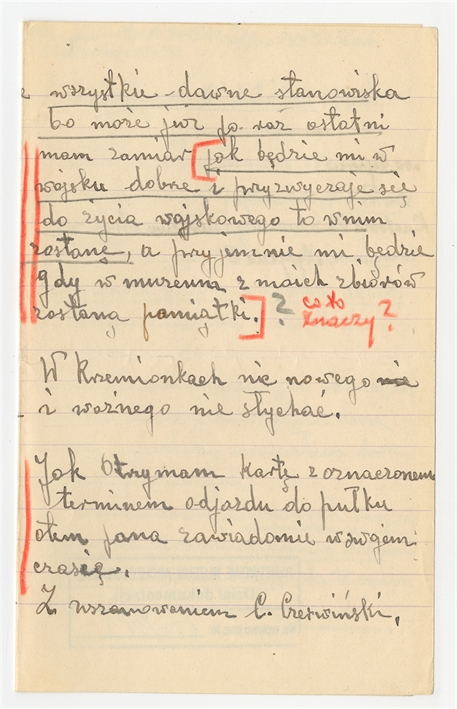 wszystkie dawne stanowiska
bo może już po raz ostatni
mam zamiar [jak będzie mi w
wojsku dobrze i przyzwyczaje się
do życia wojskowego to w nim
zostanę, a przyjemnie mi będzie
gdy w muzeum z moich zbiorów
zostaną pamiątki.] ? co to
znaczy?
W Krzemionkach nic nowego nie
i ważnego nie słychać.
Jak Otrzymam kartę z oznaczonem
terminem odjazdu do pułku
otem pana zawiadomie w swojem
czasię.
Z uszanowaniem C. Czerwiński.